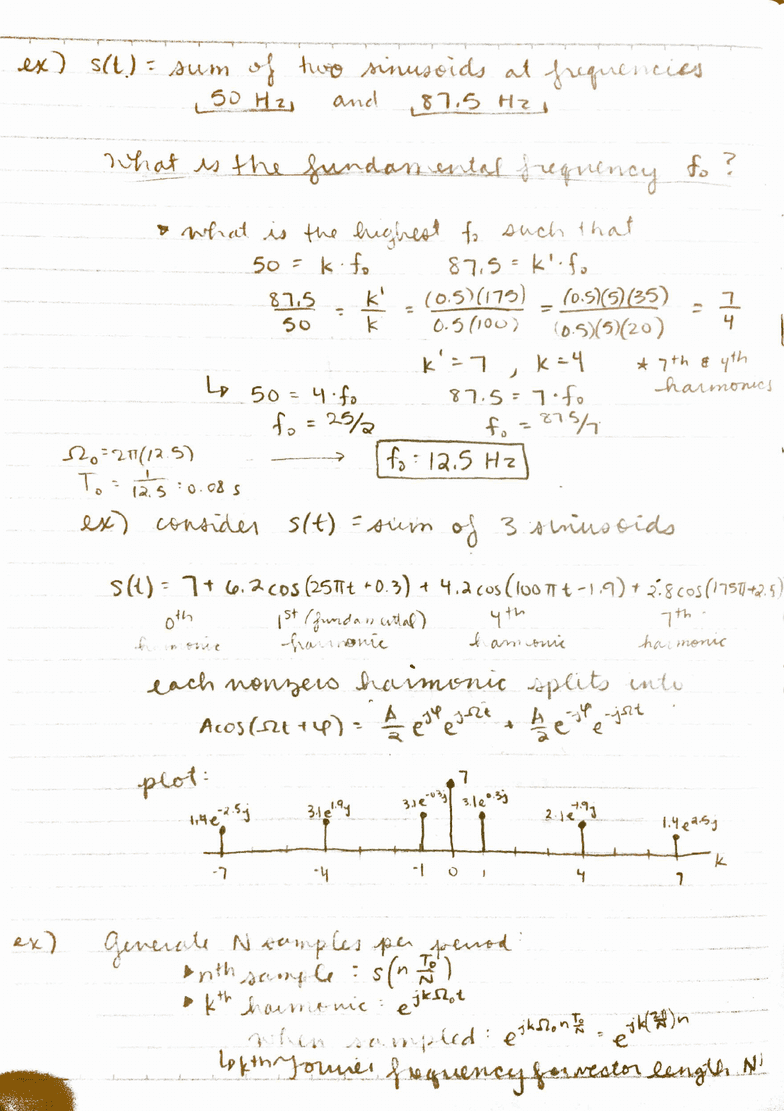 ex) s(t) = sum of two sinusoids at frequencies
50 Hz and 87.5 Hz
What is the fundamental frequency f₀ ?
• what is the highest f₀ such that
50 = k · f₀ 87.5 = k' · f₀
87.5/50 = k'/k = (0.5)(175)/0.5(100) = (0.5)(5)(35)/(0.5)(5)(20) = 7/4
k' = 7 , k = 4 * 7th & 4th
harmonics
↳ 50 = 4 · f₀ 87.5 = 7 · f₀
f₀ = 25/2 f₀ = 87.5/7
Ω₀ = 2π(12.5) → f₀ = 12.5 Hz
T₀ = 1/12.5 = 0.08 s
ex) consider s(t) = sum of 3 sinusoids
s(t) = 7 + 6.2 cos(25πt + 0.3) + 4.2 cos(100πt - 1.9) + 2.8 cos(175π+2.5)
0th 1st (fundamental) 4th 7th
harmonic harmonic harmonic harmonic
each nonzero harmonic splits into
A cos(Ωt + φ) = A/2 e^jφ e^jΩt + A/2 e^-jφ e^-jΩt
plot:
7
1.4e^-2.5j 3.1e^1.9j 3.1e^-0.3j 3.1e^0.3j 2.1e^-1.9j 1.4e^2.5j
-7 -4 -1 0 1 4 7 k
ex) Generate N samples per period:
▸ nth sample : s(n T₀/N)
▸ kth harmonic : e^jkΩ₀t
when sampled : e^jkΩ₀n T₀/N = e^jk(2π/N)n
↳ kth Fourier frequency for vector length N